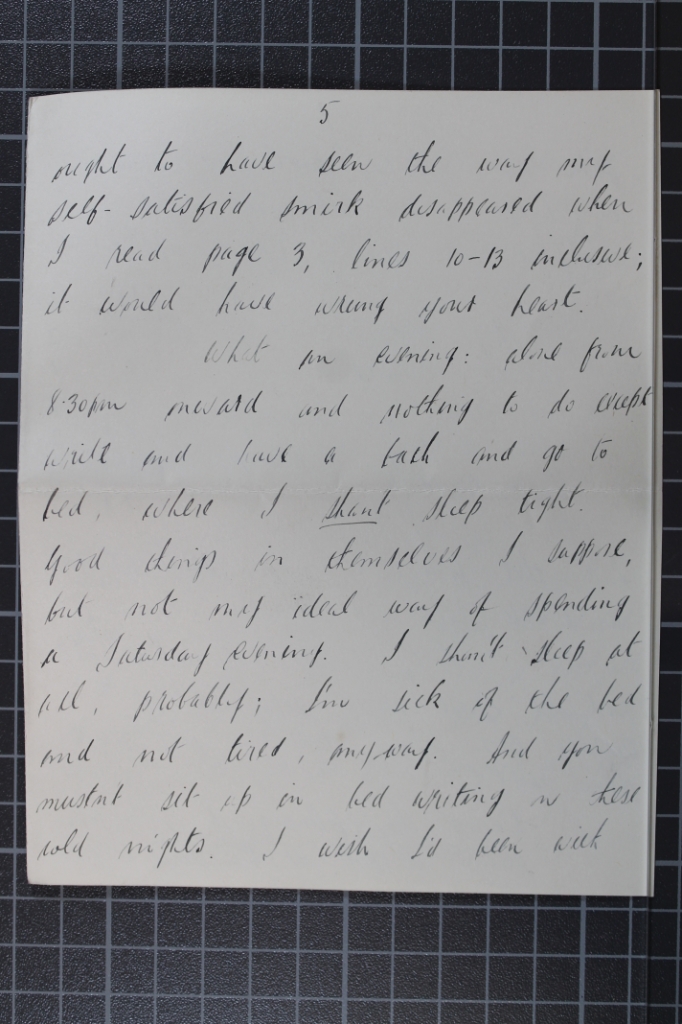 5
ought to have seen the way my
self-satisfied smirk disappeared when
I read page 3, lines 10-13 inclusive;
it would have wrung your heart.
What an evening: alone from
8.30pm onward and nothing to do except
write and have a bath and go to
bed, where I shant sleep tight.
Good things in themselves I suppose,
but not my ideal way of spending
a Saturday evening. I shan't sleep at
all, probably; I'm sick of the bed
and not tired, anyway. And you
mustnt sit up in bed writing on these
cold nights. I wish I'd been with